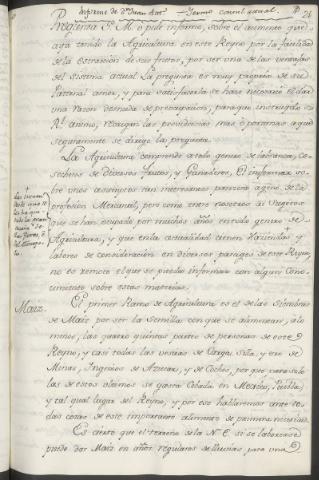 Pregunta S. M. o pide informe, sobre el aumento que
aya tenido la Agricultura en este Reyno por la facilidad
de la extraccion de sus frutos, por ser una de las ventajas
del sistema actual. La pregunta es muy propria de su
Paternal amor, y para satisfacerla se hace necesario el dar
una razon desnuda de preocupacion, para que instruido su
Rl. animo, recaigan las providencias mas oportunas a que
seguramente se dirige la pregunta.
La Agricultura comprende a todo genero de labranza, co-
sechas de diversos frutos, y Ganaderos. El informar so-
bre unos asumptos tan interesantes parecera ageno de la
profesion Mercantil, pero como entre nosotros ai Sugetos
que se han ocupado por muchos años en todo genero de
Agricultura, y que en la actualidad tienen Haziendas y
labores de consideracion en diversos parages de este Reyno,
no es remoto el que se puedan informar con algun cono-
cimiento sobre estas materias.
Maiz.
El primer Ramo de Agricultura es el de las Siembras
de Maiz por ser la Semilla con que se alimentan, a lo
menos, las quatro quintas partes de personas de este
Reyno, y casi todas las vestias de Carga, Silla, y tiro de
Minas, Ingenios de Azucar, y de Coches, por que para solo
las de estos ultimos se gasta Cebada en Mexico, Puebla
y tal qual lugar del Reyno, y por eso hablaremos ante to-
das cosas de este importante alimento de primera necesidad.
Es cierto que el terreno de la N. E. si se laborease
puede dar Maiz en años regulares de lluvias para una